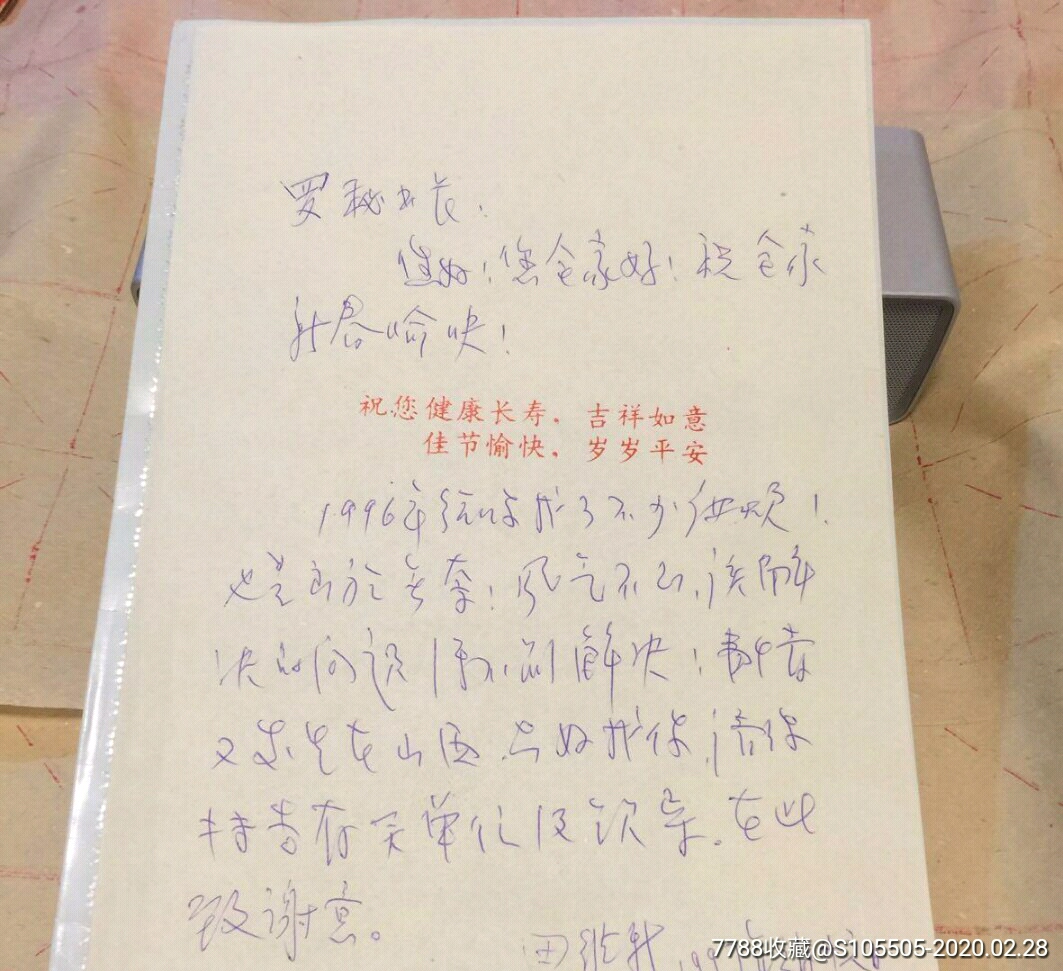 罗秘书长:
您好!您全家好!祝全家
新春愉快!
祝您健康长寿,吉祥如意
佳节愉快,岁岁平安
1996年给你找了不少麻烦!
也是出于无奈!风气不正,该解
决的问题得不到解决!事情
又发生在山西,只好找你,请你
转告有关单位及领导。在此
致谢意。
田
7788收藏@S105505-2020.02.28